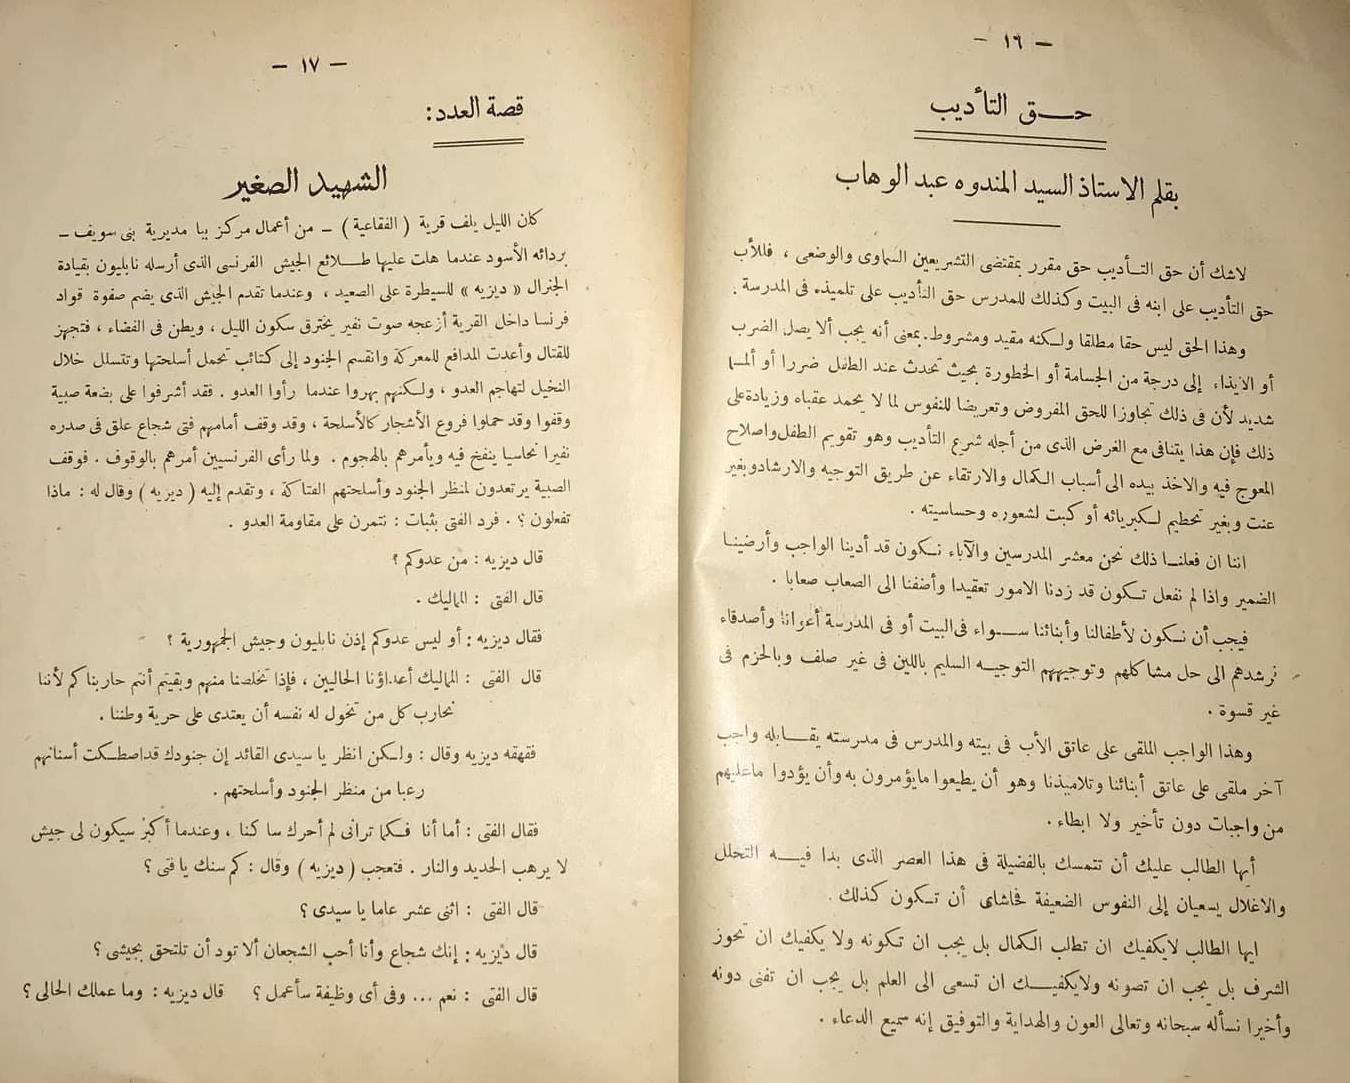 — ١٦ —
حق التأديب
بقلم الاستاذ السيد المندوه عبد الوهاب
لاشك أن حق التأديب حق مقرر بمقتضى التشريعين السماوى والوضعى ، فللأب
حق التأديب على ابنه فى البيت وكذلك للمدرس حق التأديب على تلميذه فى المدرسة .
وهذا الحق ليس حقا مطلقا ولكنه مقيد ومشروط . بمعنى أنه يجب ألا يصل الضرب
أو الايذاء إلى درجة من الجسامة أو الخطورة بحيث تحدث عند الطفل ضررا أو ألما
شديد لأن فى ذلك تجاوزا للحق المفروض وتعريضا للنفوس لما لا يحمد عقباه وزيادة على
ذلك فإن هذا يتنافى مع الغرض الذى من أجله شرع التأديب وهو تقويم الطفل واصلاح
المعوج فيه والاخذ بيده الى أسباب الكمال والارتقاء عن طريق التوجيه والارشاد وبغير
عنت وبغير تحطيم لكبريائه أو كبت لشعوره وحساسيته .
اننا ان فعلنا ذلك نحن معشر المدرسين والآباء نكون قد أدينا الواجب وأرضينا
الضمير واذا لم نفعل نكون قد زدنا الامور تعقيدا وأضفنا الى الصعاب صعابا .
فيجب أن نكون لأطفالنا وأبنائنا سواء فى البيت أو فى المدرسة أعوانا وأصدقاء
نرشدهم الى حل مشاكلهم وتوجيههم التوجيه السليم باللين فى غير صلف وبالحزم فى
غير قسوة .
وهذا الواجب الملقى على عاتق الأب فى بيته والمدرس فى مدرسته يقابله واجب
آخر ملقى على عاتق أبنائنا وتلاميذنا وهو أن يطيعوا ما يؤمرون به وأن يؤدوا ما عليهم
من واجبات دون تأخير ولا ابطاء .
أيها الطالب عليك أن تتمسك بالفضيلة فى هذا العصر الذى بدا فيه التحلل
والاغلال يسعيان إلى النفوس الضعيفة فحاشاى أن تكون كذلك .
ايها الطالب لايكفيك ان تطلب الكمال بل يجب ان تكونه ولا يكفيك ان تحوز
الشرف بل يجب ان تصونه ولايكفيك ان تسعى الى العلم بل يجب ان تفنى دونه
وأخيرا نسأله سبحانه وتعالى العون والهداية والتوفيق إنه سميع الدعاء .
— ١٧ —
قصة العدد :
الشهيد الصغير
كان الليل يلف قرية ( الفقاعية ) – من أعمال مركز ببا مديرية بنى سويف –
بردائه الأسود عندما هلت عليها طلائع الجيش الفرنسى الذى أرسله نابليون بقيادة
الجنرال « ديزيه » للسيطرة على الصعيد ، وعندما تقدم الجيش الذى يضم صفوة قواد
فرنسا داخل القرية أزعجه صوت نفير يخترق سكون الليل ، ويطن فى الفضاء ، فتجهز
للقتال وأعدت المدافع للمعركة وانقسم الجنود إلى كتائب تحمل أسلحتها وتتسلل خلال
النخيل لتهاجم العدو ، ولكنهم بهروا عندما رأوا العدو . فقد أشرفوا على بضعة صبية
وقفوا وقد حملوا فروع الأشجار كالأسلحة ، وقد وقف أمامهم فتى شجاع علق فى صدره
نفيرا نحاسيا ينفخ فيه ويأمرهم بالهجوم . ولما رأى الفرنسيين أمرهم بالوقوف . فوقف
الصبية يرتعدون لمنظر الجنود وأسلحتهم الفتاكة ، وتقدم إليه ( ديزيه ) وقال له : ماذا
تفعلون ؟ . فرد الفتى بثبات : نتمرن على مقاومة العدو .
قال ديزيه : من عدوكم ؟
قال الفتى : المماليك .
فقال ديزيه : أو ليس عدوكم إذن نابليون وجيش الجمهورية ؟
قال الفتى : المماليك أعداؤنا الحاليين ، فإذا تخلصنا منهم وبقيتم أنتم حاربناكم لأننا
نحارب كل من تخول له نفسه أن يعتدى على حرية وطننا .
فقهقه ديزيه وقال : ولكن انظر يا سيدى القائد إن جنودك قد اصطكت أسنانهم
رعبا من منظر الجنود وأسلحتهم .
فقال الفتى : أما أنا فكما ترانى لم أحرك ساكنا ، وعندما أكبر سيكون لى جيش
لا يرهب الحديد والنار . فتعجب ( ديزيه ) وقال : كم سنك يا فتى ؟
قال الفتى : اثنى عشر عاما يا سيدى ؟
قال ديزيه : إنك شجاع وأنا أحب الشجعان ألا تود أن تلتحق بجيشى ؟
قال الفتى : نعم ... وفى أى وظيفة سأعمل ؟ قال ديزيه : وما عملك الحالى ؟